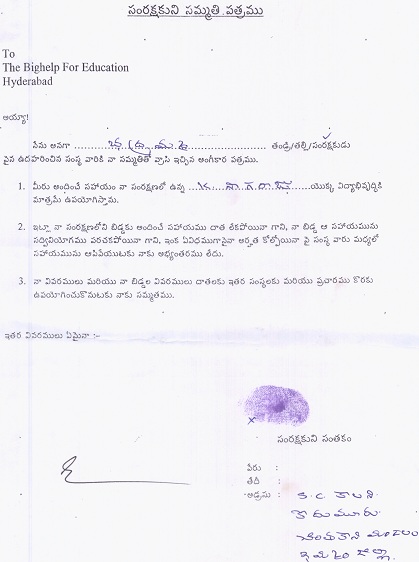 సంరక్షకుని సమ్మతి పత్రము
To
The Bighelp For Education
Hyderabad
అయ్యా!
నేను అనగా ........................................ తండ్రి/తల్లి/సంరక్షకుడు
పైన ఉదహరించిన సంస్థ వారికి నా సమ్మతితో వ్రాసి ఇచ్చిన అంగీకార పత్రము.
1. మీరు అందించే సహాయం నా సంరక్షణలో ఉన్న .................... యొక్క విద్యాభివృద్ధికి
మాత్రమే ఉపయోగిస్తాను.
2. ఇట్లా నా సంరక్షణలోని బిడ్డకు అందించే సహాయము దాత లేకపోయినా గాని, నా బిడ్డ ఆ సహాయమును
సద్వినియోగము పరచకపోయినా గాని, ఇంక ఏవిధముగానైనా అర్హత కోల్పోయినా పై సంస్థ వారు మధ్యలో
సహాయమును ఆపివేయుటకు నాకు అభ్యంతరము లేదు.
3. నా వివరములు మరియు నా బిడ్డల వివరములు దాతలకు ఇతర సంస్థలకు మరియు ప్రచారము కొరకు
ఉపయోగించుకొనుటకు నాకు సమ్మతము.
ఇతర వివరములు ఏమైనా :-
x
సంరక్షకుని సంతకం
పేరు :
తేదీ :
అడ్రసు : S.C. కాలని
కొదుమూరు
చింతకాని మండలం
ఖమ్మం జిల్లా